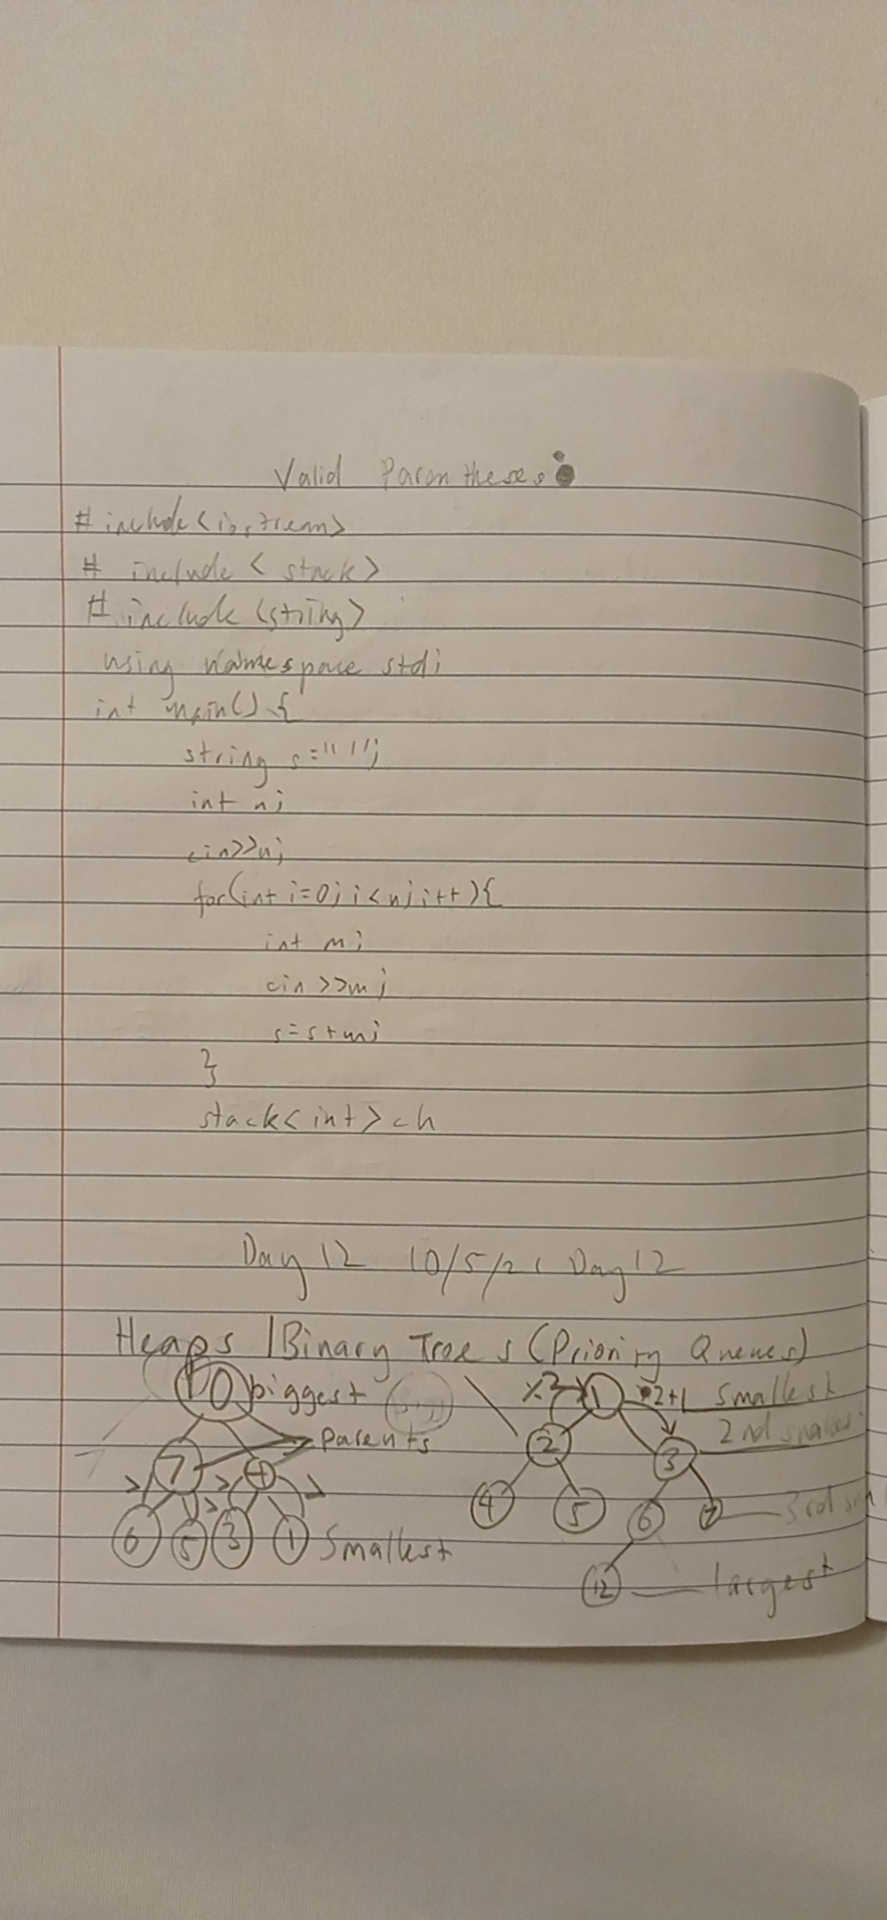 Valid Parentheses
#include<iostream>
# include < stack>
#include <string>
using namespace std;
int main() {
string s="";
int n;
cin>>n;
for(int i=0; i<n; i++){
int m;
cin >>m;
s=s+m;
}
stack<int>ch
Day 12 10/5/21 Day 12
Heaps | Binary Trees (Priority Queues)
10 biggest
1 •2+1 smallest
Parents
2 2nd smallest
7 4 3
> > > >
4 5 6 7 3rd
6 5 3 1 Smallest
12 largest